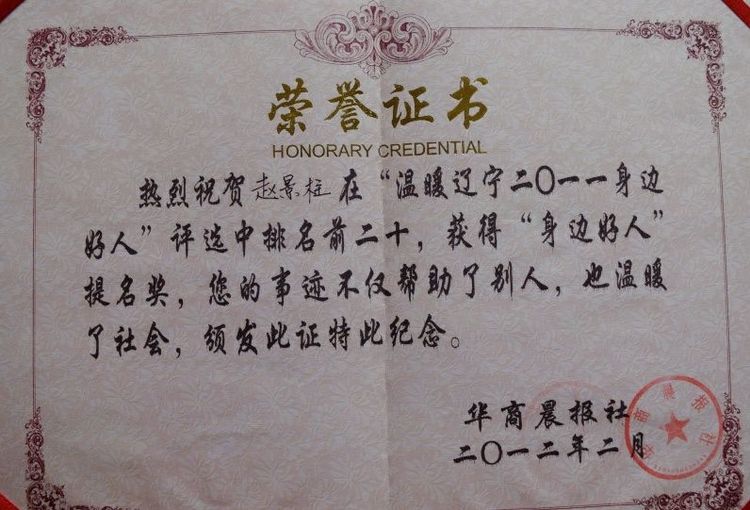 荣誉证书
HONORARY CREDENTIAL
热烈祝贺赵景柱在“温暖辽宁二〇一一身边
好人”评选中排名前二十，获得“身边好人”
提名奖，您的事迹不仅帮助了别人，也温暖
了社会，颁发此证特此纪念。
华商晨报社
二〇一二年二月
华商晨报社